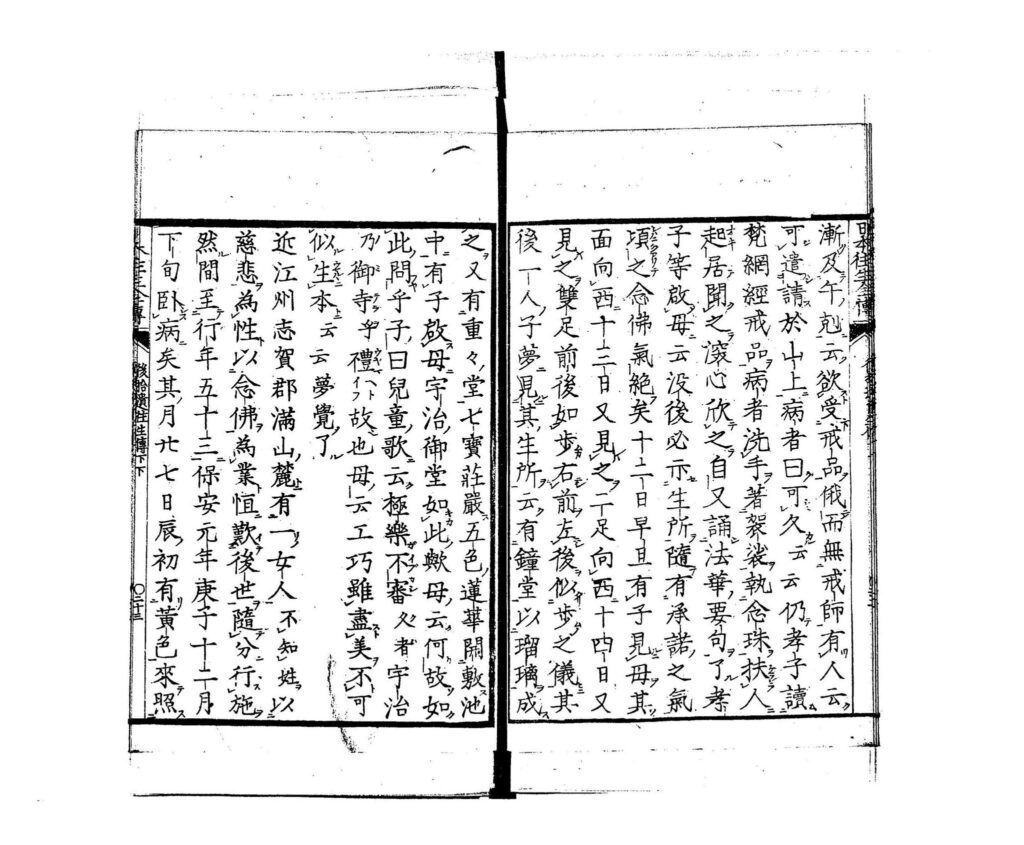 漸及午尅云欲受戒品俄而無戒師有人云
可遣請於山上病者曰可久云云仍孝子讀
梵網經戒品病者洗手著袈裟執念珠扶人
起居聞之滚心欣之自又誦法華要句了孝
子等啟母云没後必示生所隨有承諾之氣
頃之念佛氣絶矣十二日早旦有子見母其
面向西十三日又見之二足向西十四日又
見之雙足前後如歩右前左後似歩之儀其
後一人子夢見其生所云有鐘堂以瑠璃成
之又有重々堂七寶莊嚴五色蓮華開敷池
中有子啟母宇治御堂如此歟母云何故如
此問乎子曰兒童歌云極樂不審久者宇治
乃御寺乎禮故也母云工巧雖盡美不可
似生本云云夢覺了
近江州志賀郡滿山麓有一女人不知姓以
慈悲為性以念佛為業恒歎後世隨分行施
然間至行年五十三保安元年庚子十二月
下旬卧病矣其月廿七日辰初有黃色來照